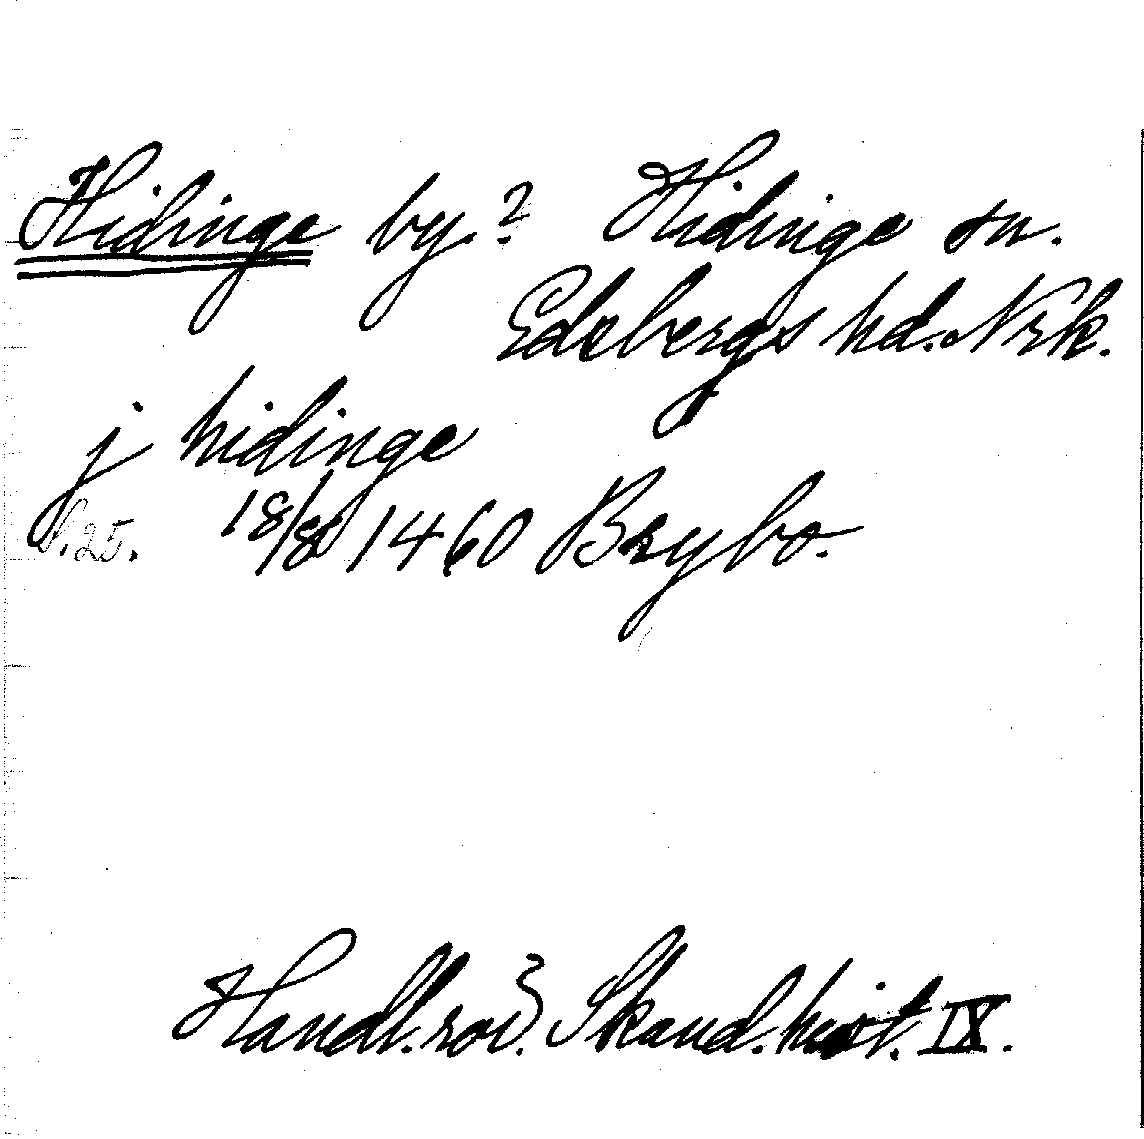 Hidinge by.? Hidinge sn.
Edsbergs hd. Nrk.
j hidinge
S. 25. 18/8 1460 Brybo.
Handl. rör. Skand. hist. IX.